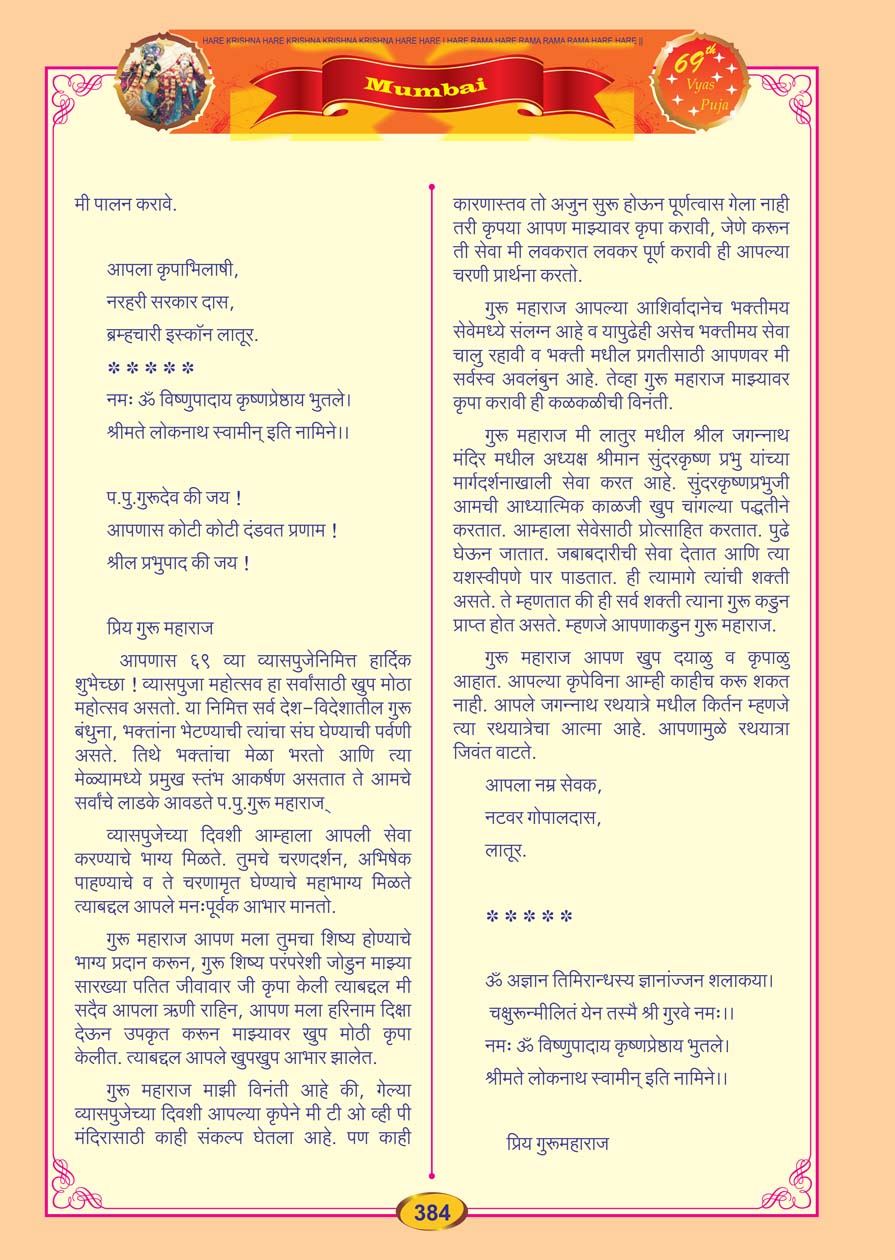 HARE KRISHNA HARE KRISHNA KRISHNA KRISHNA HARE HARE | HARE RAMA HARE RAMA RAMA RAMA HARE HARE ||
Mumbai
69th
Vyas
Puja
मी पालन करावे.
आपला कृपाभिलाषी,
नरहरी सरकार दास,
ब्रम्हचारी इस्कॉन लातूर.
* * * * *
नमः ॐ विष्णुपादाय कृष्णप्रेष्ठाय भुतले।
श्रीमते लोकनाथ स्वामीन् इति नामिने।।
प.पु.गुरूदेव की जय !
आपणास कोटी कोटी दंडवत प्रणाम !
श्रील प्रभुपाद की जय !
प्रिय गुरू महाराज
आपणास ६९ व्या व्यासपुजेनिमित्त हार्दिक
शुभेच्छा ! व्यासपुजा महोत्सव हा सर्वांसाठी खुप मोठा
महोत्सव असतो. या निमित्त सर्व देश-विदेशातील गुरू
बंधुना, भक्तांना भेटण्याची त्यांचा संघ घेण्याची पर्वणी
असते. तिथे भक्तांचा मेळा भरतो आणि त्या
मेळ्यामध्ये प्रमुख स्तंभ आकर्षण असतात ते आमचे
सर्वांचे लाडके आवडते प.पु.गुरू महाराज्
व्यासपुजेच्या दिवशी आम्हाला आपली सेवा
करण्याचे भाग्य मिळते. तुमचे चरणदर्शन, अभिषेक
पाहण्याचे व ते चरणामृत घेण्याचे महाभाग्य मिळते
त्याबद्दल आपले मनःपूर्वक आभार मानतो.
गुरू महाराज आपण मला तुमचा शिष्य होण्याचे
भाग्य प्रदान करून, गुरू शिष्य परंपरेशी जोडुन माझ्या
सारख्या पतित जीवावार जी कृपा केली त्याबद्दल मी
सदैव आपला ऋणी राहिन, आपण मला हरिनाम दिक्षा
देऊन उपकृत करून माझ्यावर खुप मोठी कृपा
केलीत. त्याबद्दल आपले खुपखुप आभार झालेत.
गुरू महाराज माझी विनंती आहे की, गेल्या
व्यासपुजेच्या दिवशी आपल्या कृपेने मी टी ओ व्ही पी
मंदिरासाठी काही संकल्प घेतला आहे. पण काही
कारणास्तव तो अजुन सुरू होऊन पूर्णत्वास गेला नाही
तरी कृपया आपण माझ्यावर कृपा करावी, जेणे करून
ती सेवा मी लवकरात लवकर पूर्ण करावी ही आपल्या
चरणी प्रार्थना करतो.
गुरू महाराज आपल्या आशिर्वादानेच भक्तीमय
सेवेमध्ये संलग्न आहे व यापुढेही असेच भक्तीमय सेवा
चालु रहावी व भक्ती मधील प्रगतीसाठी आपणवर मी
सर्वस्व अवलंबुन आहे. तेव्हा गुरू महाराज माझ्यावर
कृपा करावी ही कळकळीची विनंती.
गुरू महाराज मी लातुर मधील श्रील जगन्नाथ
मंदिर मधील अध्यक्ष श्रीमान सुंदरकृष्ण प्रभु यांच्या
मार्गदर्शनाखाली सेवा करत आहे. सुंदरकृष्णप्रभुजी
आमची आध्यात्मिक काळजी खुप चांगल्या पद्धतीने
करतात. आम्हाला सेवेसाठी प्रोत्साहित करतात. पुढे
घेऊन जातात. जबाबदारीची सेवा देतात आणि त्या
यशस्वीपणे पार पाडतात. ही त्यामागे त्यांची शक्ती
असते. ते म्हणतात की ही सर्व शक्ती त्याना गुरू कडुन
प्राप्त होत असते. म्हणजे आपणाकडुन गुरू महाराज.
गुरू महाराज आपण खुप दयाळु व कृपाळु
आहात. आपल्या कृपेविना आम्ही काहीच करू शकत
नाही. आपले जगन्नाथ रथयात्रे मधील किर्तन म्हणजे
त्या रथयात्रेचा आत्मा आहे. आपणामुळे रथयात्रा
जिवंत वाटते.
आपला नम्र सेवक,
नटवर गोपालदास,
लातूर.
* * * * *
ॐ अज्ञान तिमिरान्धस्य ज्ञानांज्जन शलाकया।
चक्षुरून्मीलितं येन तस्मै श्री गुरवे नमः।।
नमः ॐ विष्णुपादाय कृष्णप्रेष्ठाय भुतले।
श्रीमते लोकनाथ स्वामीन् इति नामिने।।
प्रिय गुरूमहाराज
384